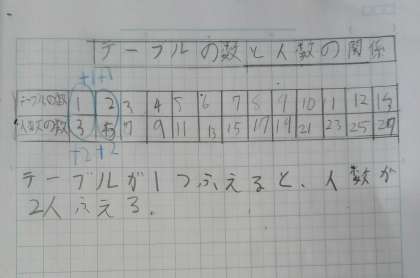 テーブルの数と人数の関係
+1 +1
テーブルの数 1 2 3 4 5 6 7 8 9 10 11 12 13
人数の数 3 5 7 9 11 13 15 17 19 21 23 25 27
+2 +2
テーブルが1つふえると、人数が
2人ふえる。